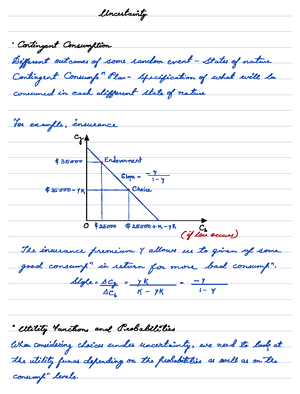 Uncertainty
• Contingent Consumption
Different outcomes of some random event - States of nature
Contingent Consumpⁿ Plan - Specification of what will be
consumed in each different state of nature
For example, insurance
Cg
$35000
Endowment
Slope = -γ / 1-γ
$35000 - γK
Choice
0 $25000 $25000+K-γK Cb
(if loss occurs)
The insurance premium γ allows us to given up some
good consumpⁿ in return for more bad consumpⁿ.
Slope = ΔCg / ΔCb = γK / K - γK = -γ / 1-γ
• Utility Functions and Probabilities
When considering choices under uncertainty, we need to look at
the utility funcs. depending on the probabilities as well as on the
consumpⁿ levels.